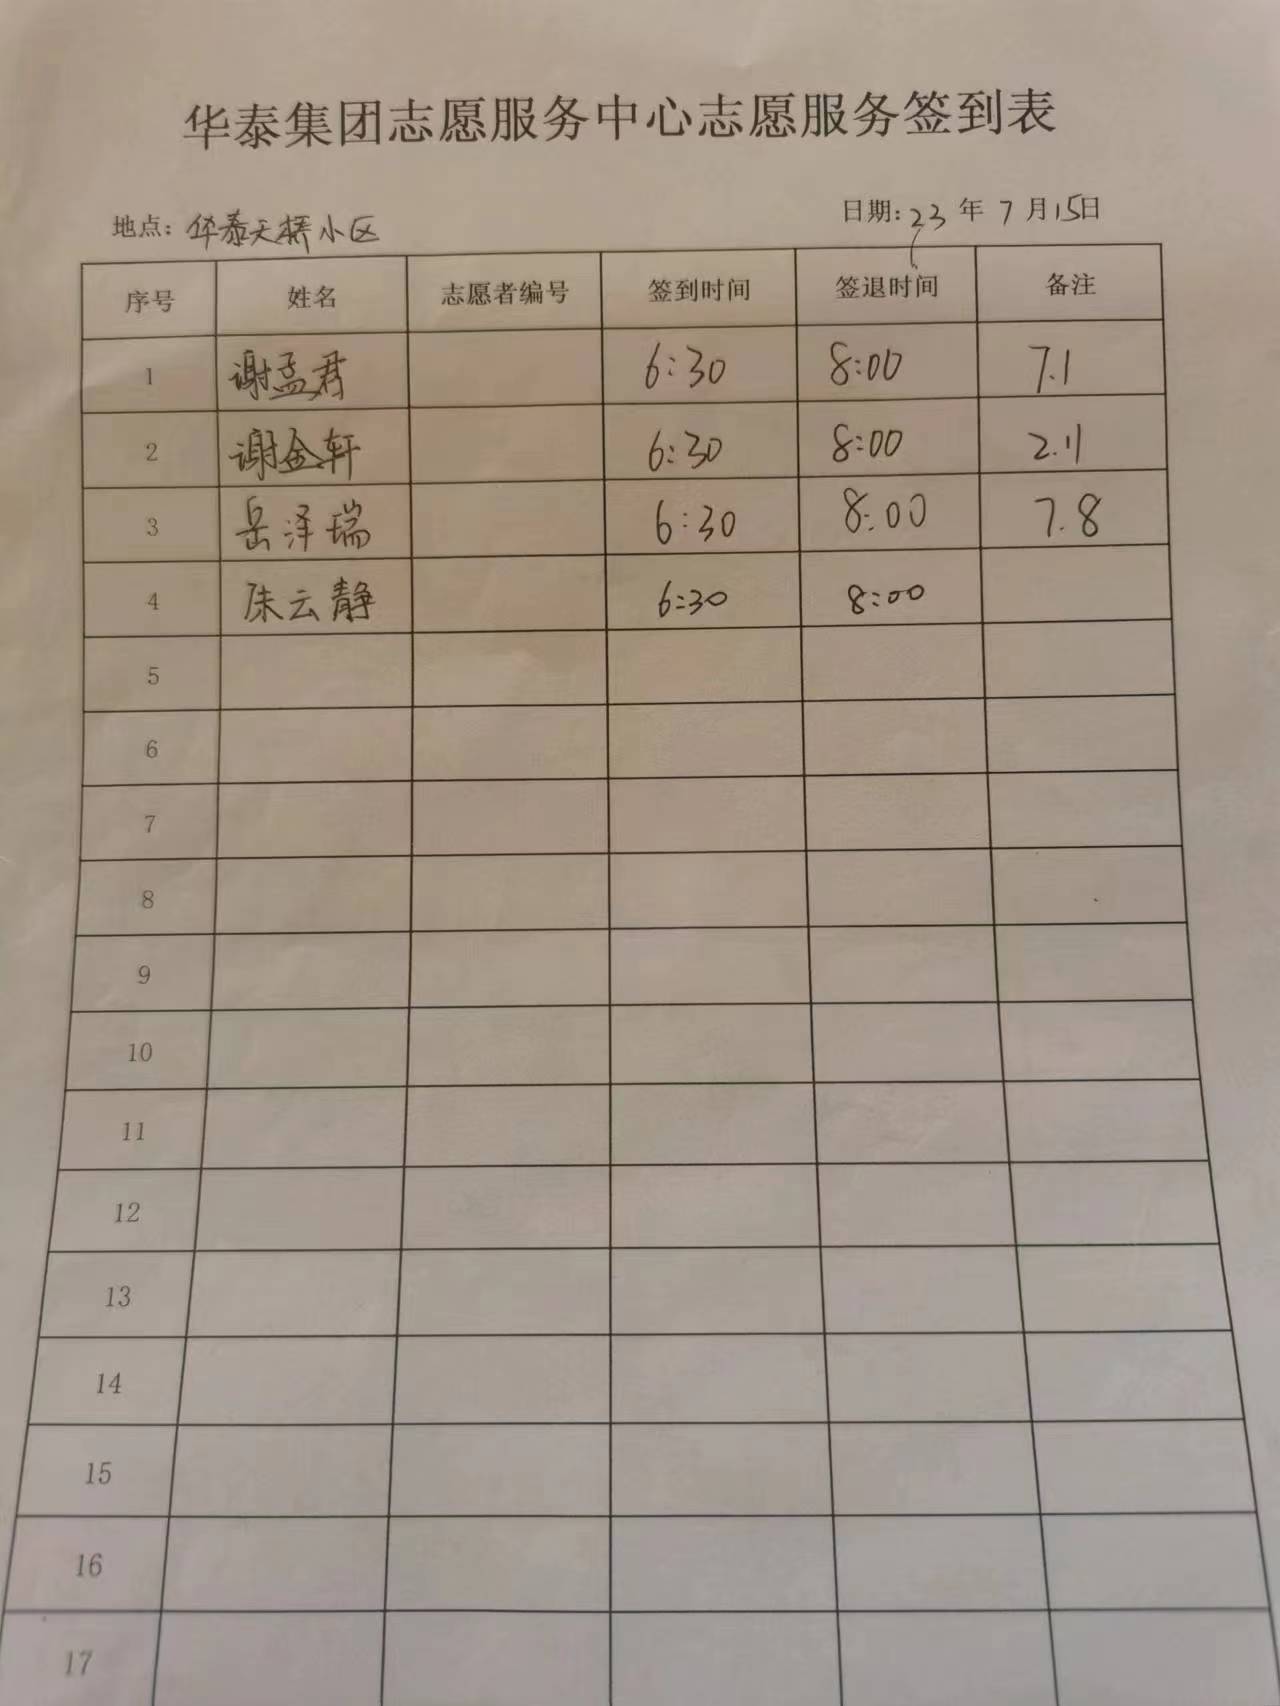 华泰集团志愿服务中心志愿服务签到表
地点：华泰天桥小区 日期：23年7月15日
序号 姓名 志愿者编号 签到时间 签退时间 备注
1 谢孟君 6:30 8:00 7.1
2 谢金轩 6:30 8:00 2.11
3 岳泽瑞 6:30 8:00 7.8
4 朱云静 6:30 8:00
5
6
7
8
9
10
11
12
13
14
15
16
17